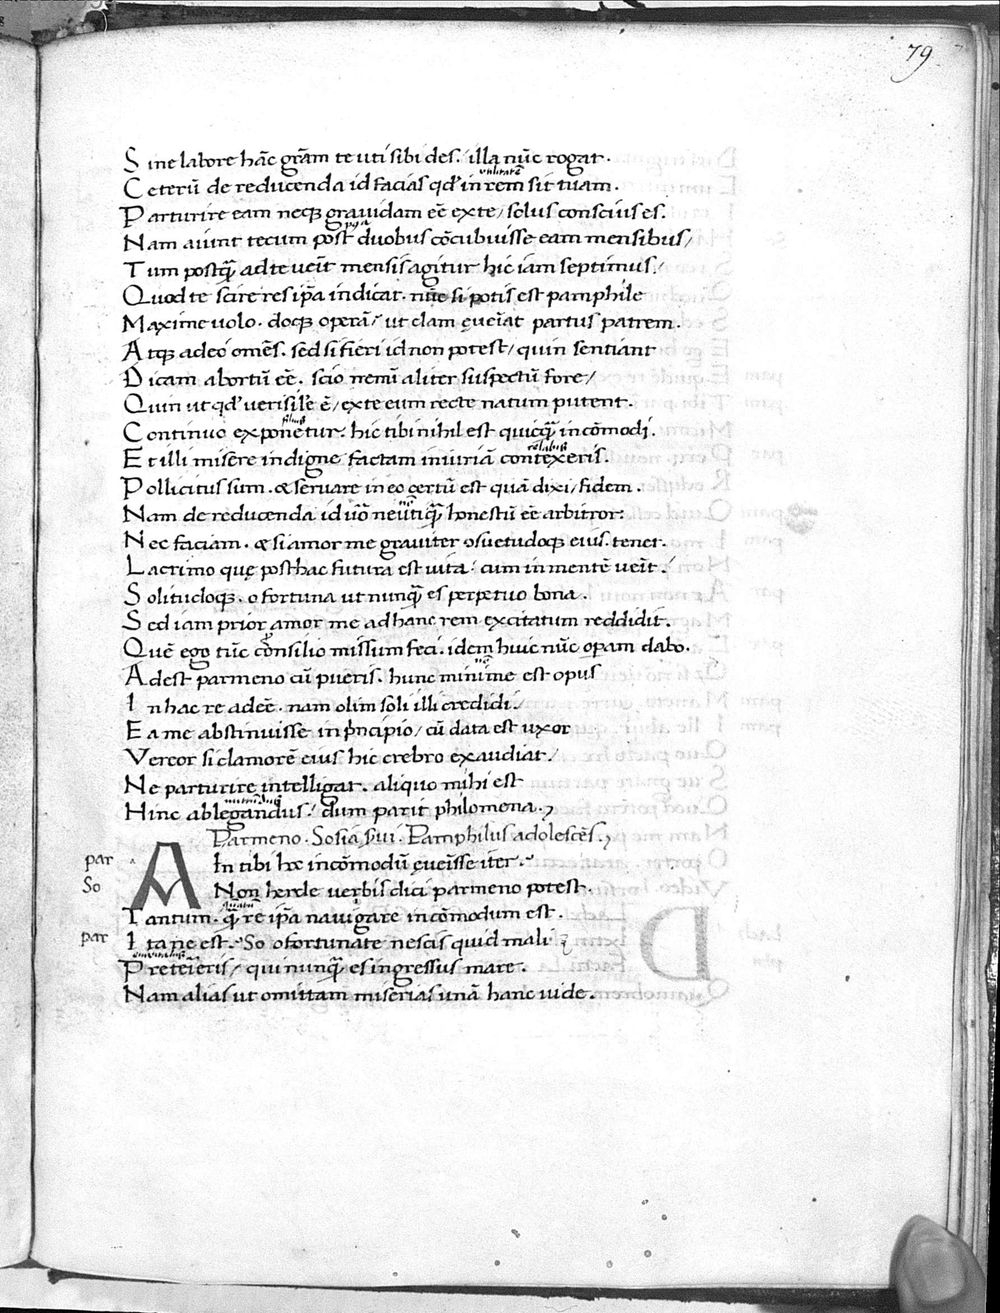 79
S ine labore hãc grãm te uti sibi des. illa nũc rogat.
utilitatẽ
C eterũ de reducenda id facias qd' in rem sit tuam.
P arturire eam neqƺ grauidam eẽ exte / solus conscius es.
N am aiunt tecum post duobus cõcubuisse eam mensibus /
T um postq̃ ad te ueĩt mensis agitur hic iam septimus.
Q uod te scire res ip̃a indicat. nũc si potis est pamphile
M axime uolo. doqƺ operã / ut clam ęueĩat partus patrem.
A tqƺ adeo omẽs. sed si fieri id non potest / quin sentiant
D icam abortũ eẽ. scio nemĩ aliter suspectũ fore /
Q uin ut qd' uerisile ẽ / exte eum recte natum putent.
filius
C ontinuo exponetur. hic tibi nihil est quicq̃ incõmodi.
E t illi misere indigne factam iniuriã contexeris.
P ollicitus sum. & seruare in eo certũ est quã dixi / fidem.
N am de reducenda id uõ neũtiq̃ honestũ eẽ arbitror:
N ec faciam. & si amor me grauiter ↄsuetudoqƺ eius tenet.
L acrimo quę posthac futura est uita. cum in mentẽ ueĩt.
S olitudoqƺ. o fortuna ut nunq̃ es perpetuo bona.
S ed iam prior amor me ad hanc rem excitatum reddidit.
Q uẽ ego tũc consilio missum feci. idem huic nũc operam dabo.
A dest parmeno cũ pueris. hunc minime est opus
I n hac re adeẽ. nam olim soli illi credidi.
E a me abstinuisse in p̃ncipio / cũ data est uxor
V ereor si clamorẽ eius hic crebro exaudiat /
N e parturire intelligat. aliquo mihi est
H inc ablegandus / dum parit philomena.
Parmeno. Sosia serui. Pamphilus adolescẽs.
par A In tibi hac incõmodũ ęueĩsse iter.
So Non hercle uerbis dici parmeno potest.
T antum. q̃ re ip̃a nauigare incõmodum est.
par I ta ne est. So o fortunate nescis quid mali
P reteieris / qui nunq̃ es ingressus mare.
N am alias ut omittam miserias unã hanc uide.